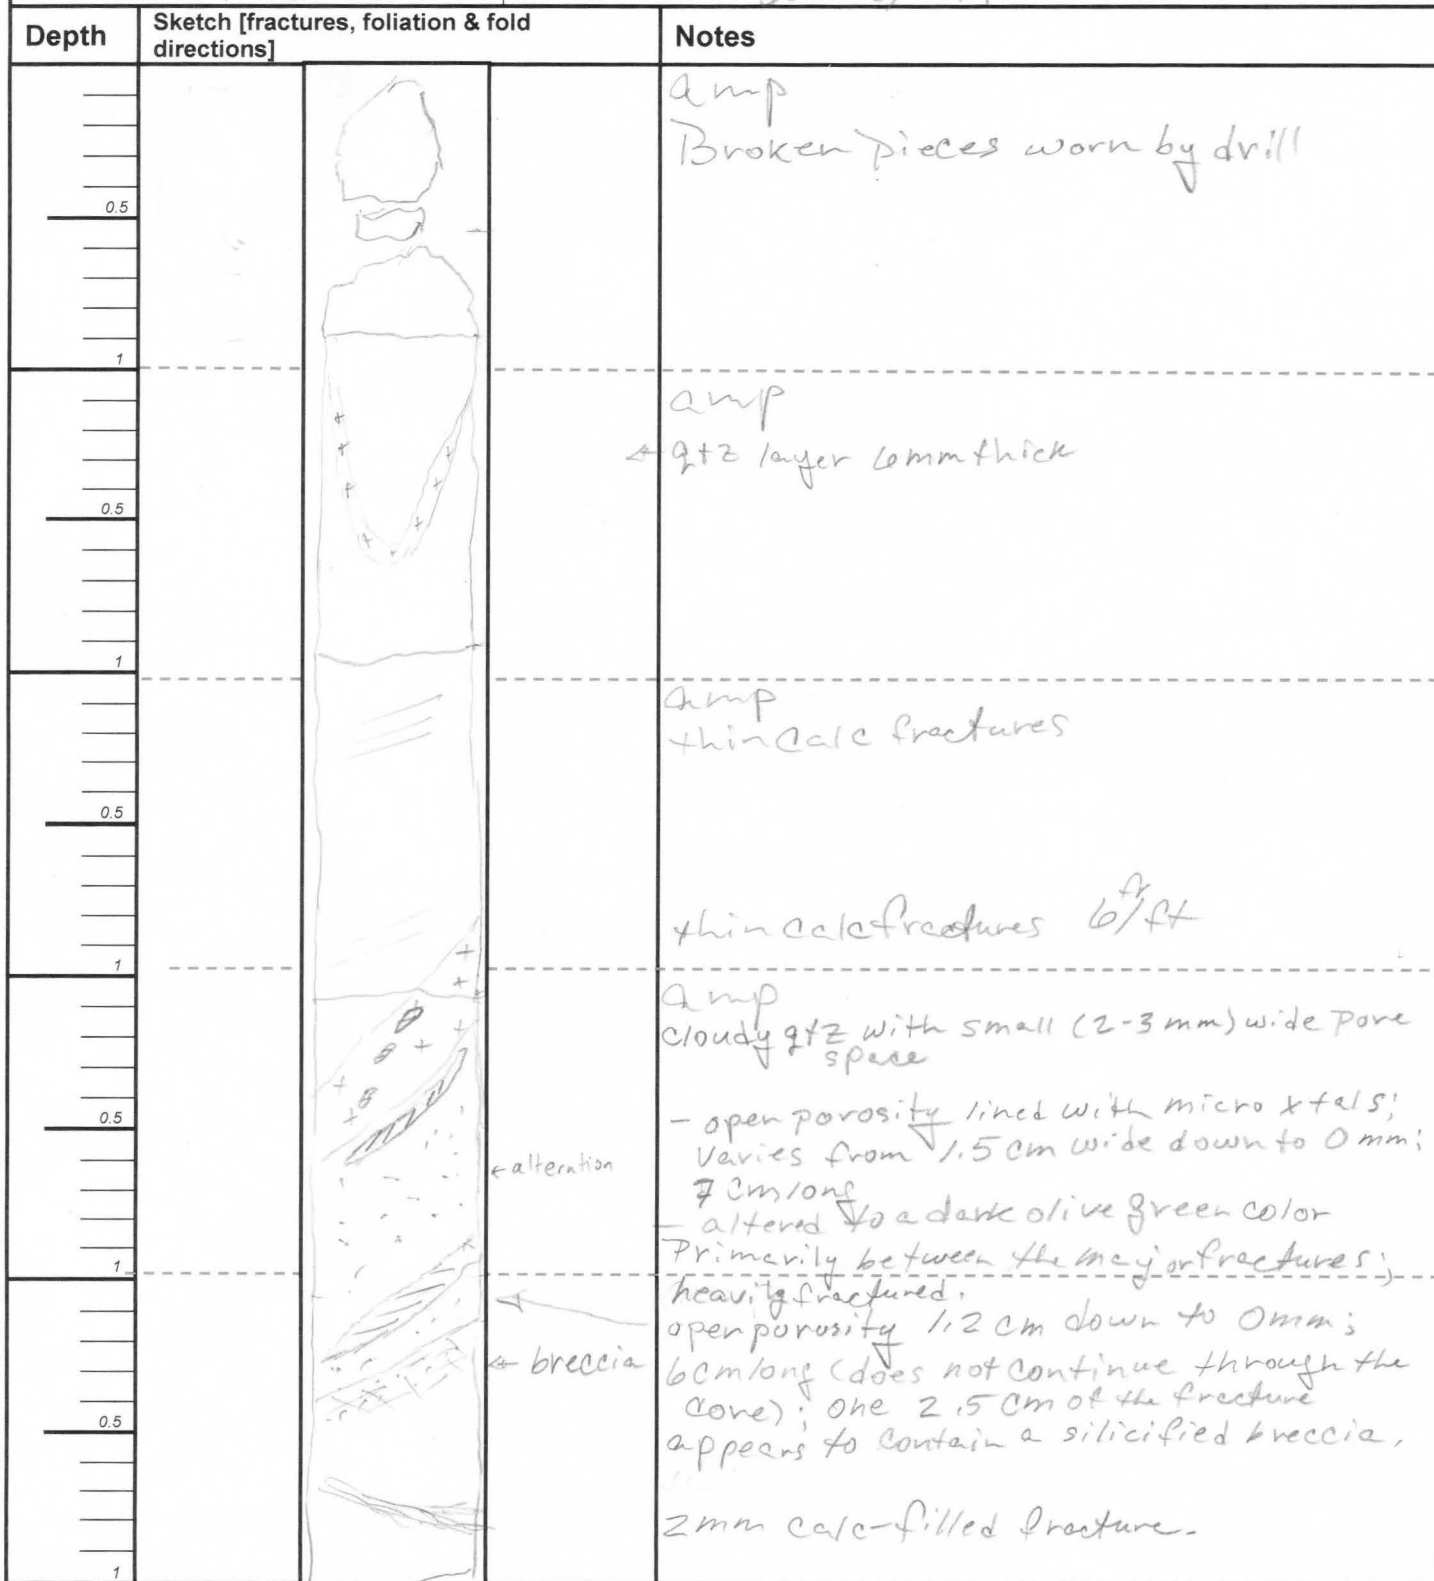 Depth
Sketch [fractures, foliation & fold
directions]
Notes
amp
Broken pieces worn by drill
0.5
1
amp
qtz layer 6mm thick
0.5
1
amp
thin calc fractures
0.5
thin calc fractures 6 fr/ft
1
amp
cloudy qtz with small (2-3 mm) wide pore
space
- open porosity lined with micro xtals;
0.5
varies from 1.5 cm wide down to 0 mm;
← alteration
7 cm long
- altered to a dark olive green color
Primarily between the major fractures;
1
heavily fractured.
open porosity 1.2 cm down to 0mm;
← breccia
6cm long (does not continue through the
core); one 2.5 cm of the fracture
0.5
appears to contain a silicified breccia.
2mm calc-filled fracture.
1